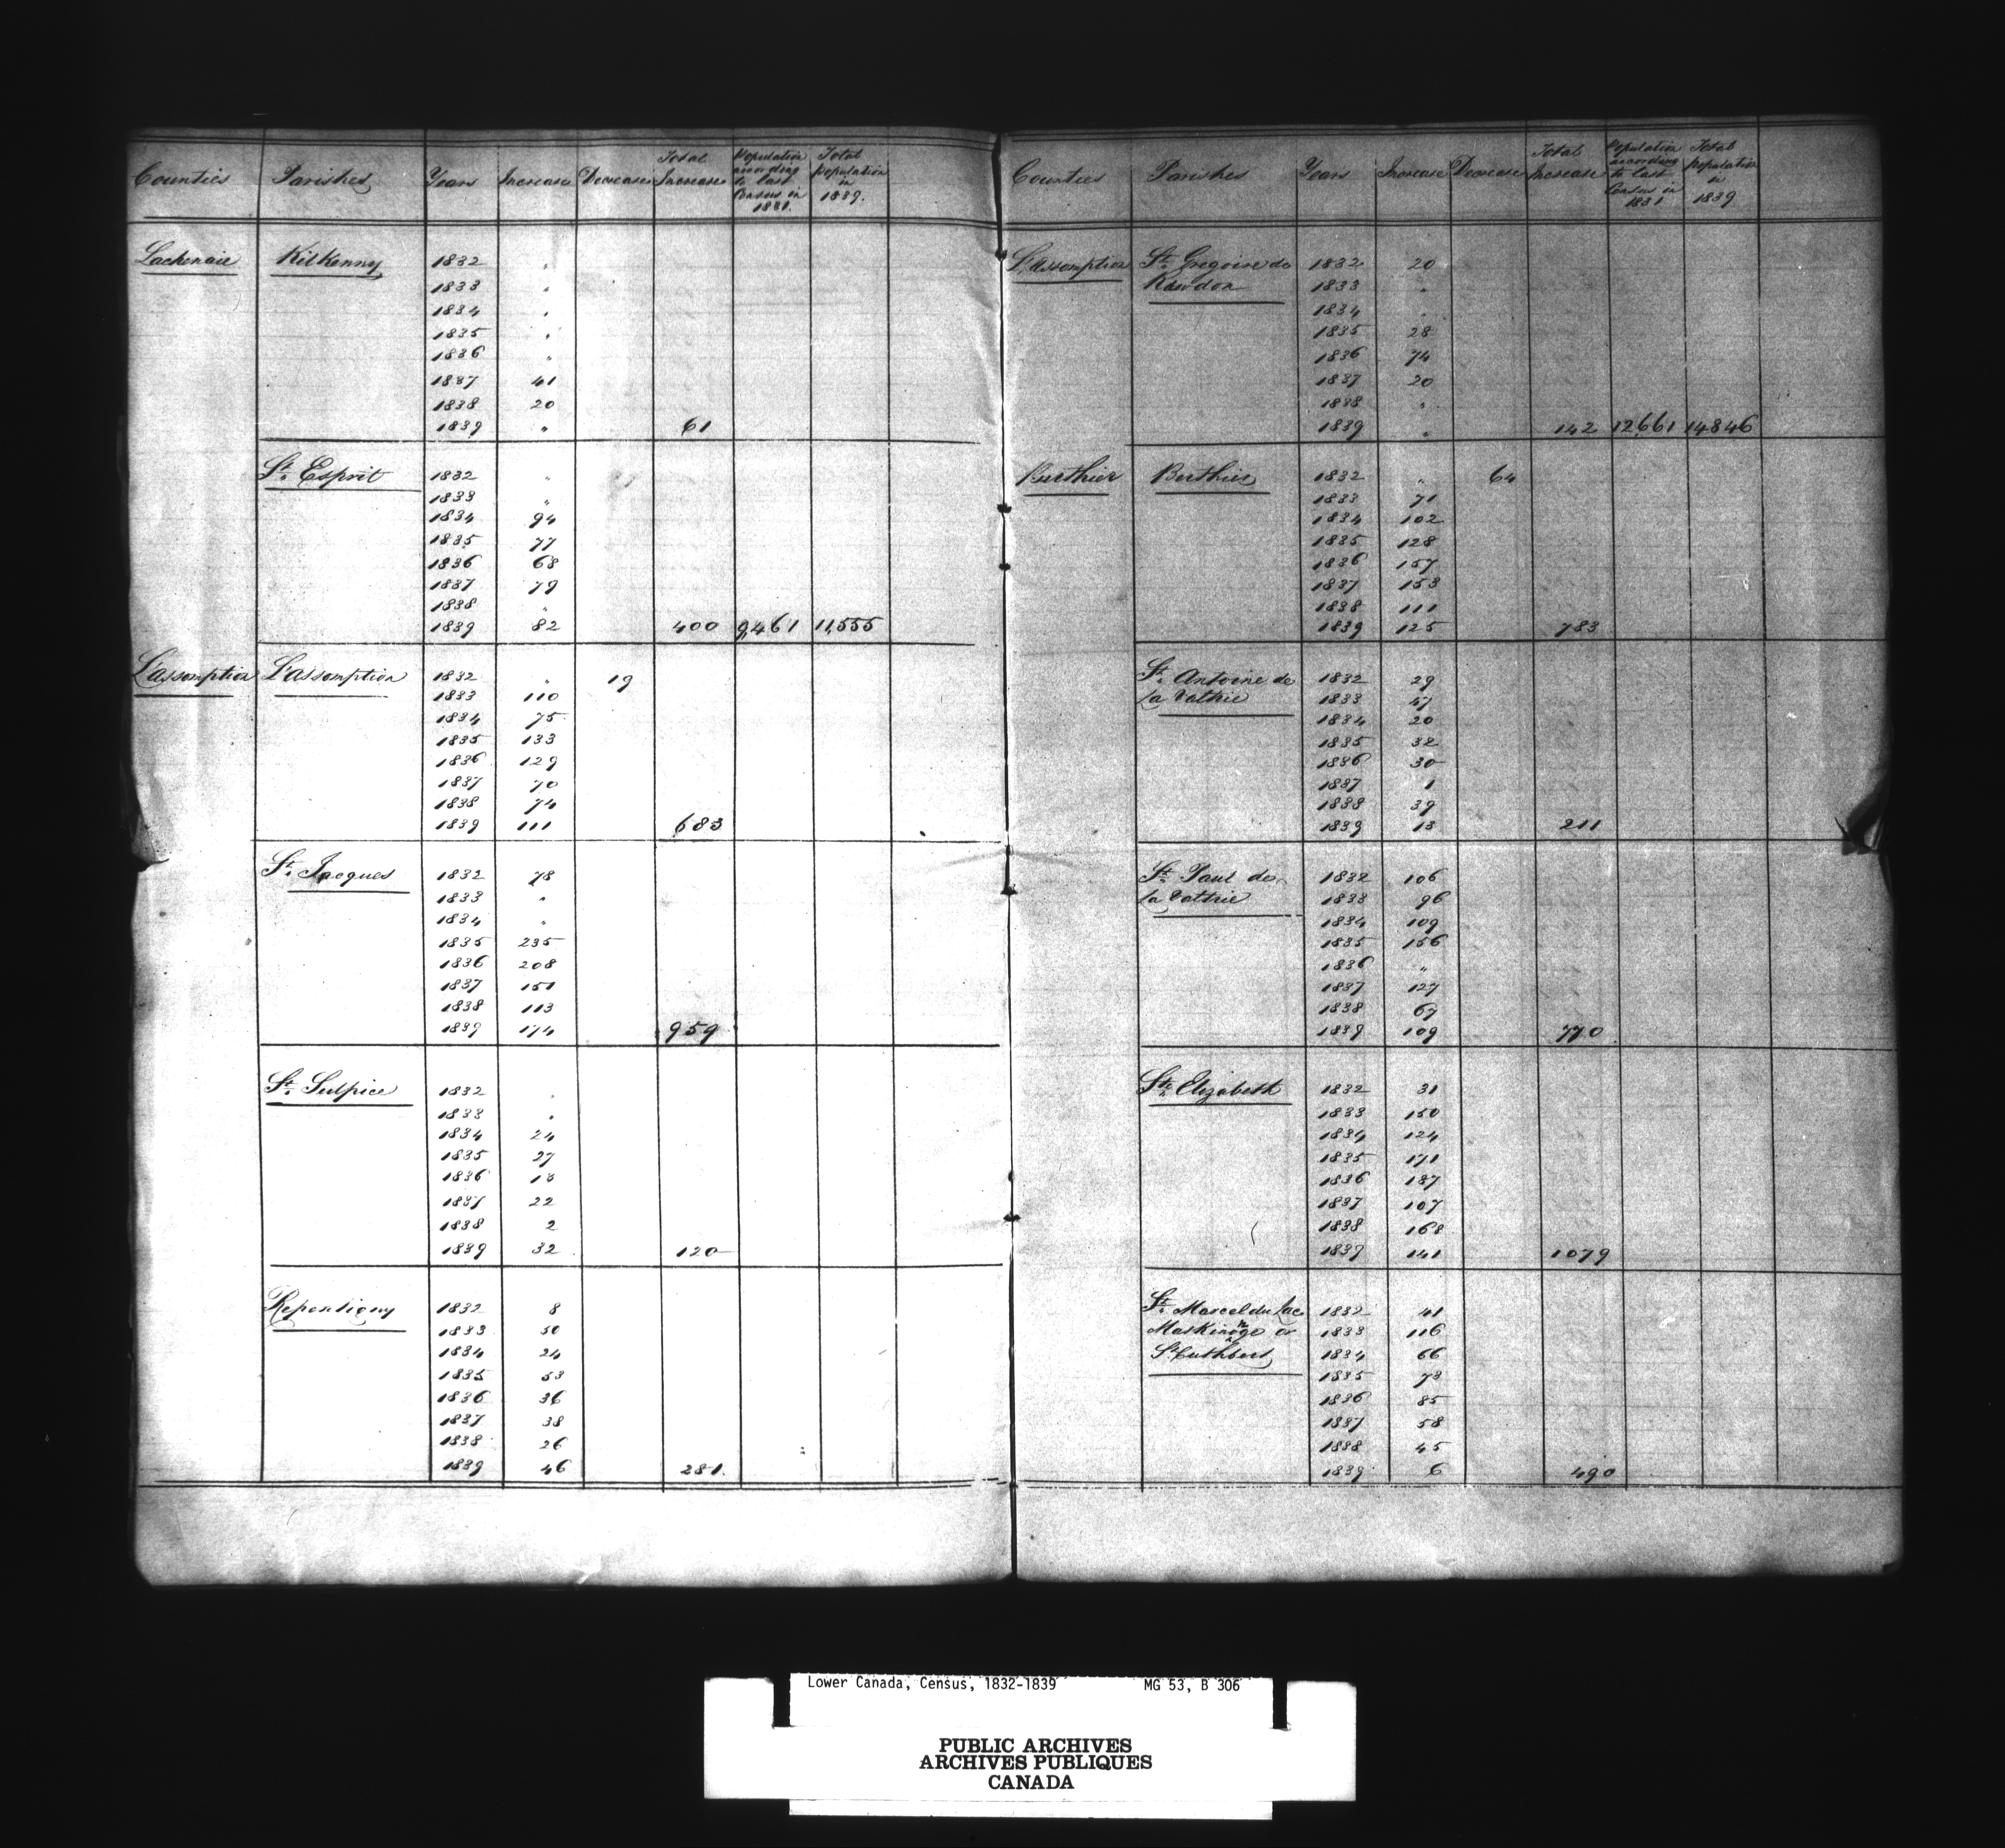 Counties Parishes Years Increase Decrease Total Increase Population according to last Census in 1831. Total population in 1839.
Lachenaie Kilkenny 1832 "
1833 "
1834 "
1835 "
1836 "
1837 41
1838 20
1839 " 61
St. Esprit 1832 "
1833 "
1834 94
1835 77
1836 68
1837 79
1838 "
1839 82 400 9,461 11,555
L'assomption L'assomption 1832 " 19
1833 110
1834 75
1835 133
1836 129
1837 70
1838 74
1839 111 683
St. Jacques 1832 78
1833 "
1834 "
1835 235
1836 208
1837 151
1838 113
1839 174 959
St. Sulpice 1832 "
1833 "
1834 24
1835 27
1836 13
1837 22
1838 2
1839 32 120
Repentigny 1832 8
1833 50
1834 24
1835 53
1836 36
1837 38
1838 26
1839 46 281.
Counties Parishes Years Increase Decrease Total Increase Population according to last Census in 1831 Total population in 1839
L'assomption St. Gregoire de 1832 20
Rawdon 1833 "
1834 "
1835 28
1836 74
1837 20
1838 "
1839 " 142 12661 14846
Berthier Berthier 1832 " 64
1833 71
1834 102
1835 128
1836 157
1837 153
1838 111
1839 125 783
St. Antoine de 1832 29
La Valtrie 1833 47
1834 20
1835 32
1836 30
1837 1
1838 39
1839 13 211
St. Paul de 1832 106
La Valtrie 1833 96
1834 109
1835 156
1836 "
1837 127
1838 67
1839 109 770
Ste. Elizabeth 1832 31
1833 150
1834 124
1835 171
1836 187
1837 107
1838 168
1839 141 1079
St. Marcel du Lac 1832 41
Maskinonge or 1833 116
St. Cuthbert 1834 66
1835 73
1836 85
1837 58
1838 45
1839 6 490
Lower Canada, Census, 1832-1839 MG 53, B 306
PUBLIC ARCHIVES
ARCHIVES PUBLIQUES
CANADA